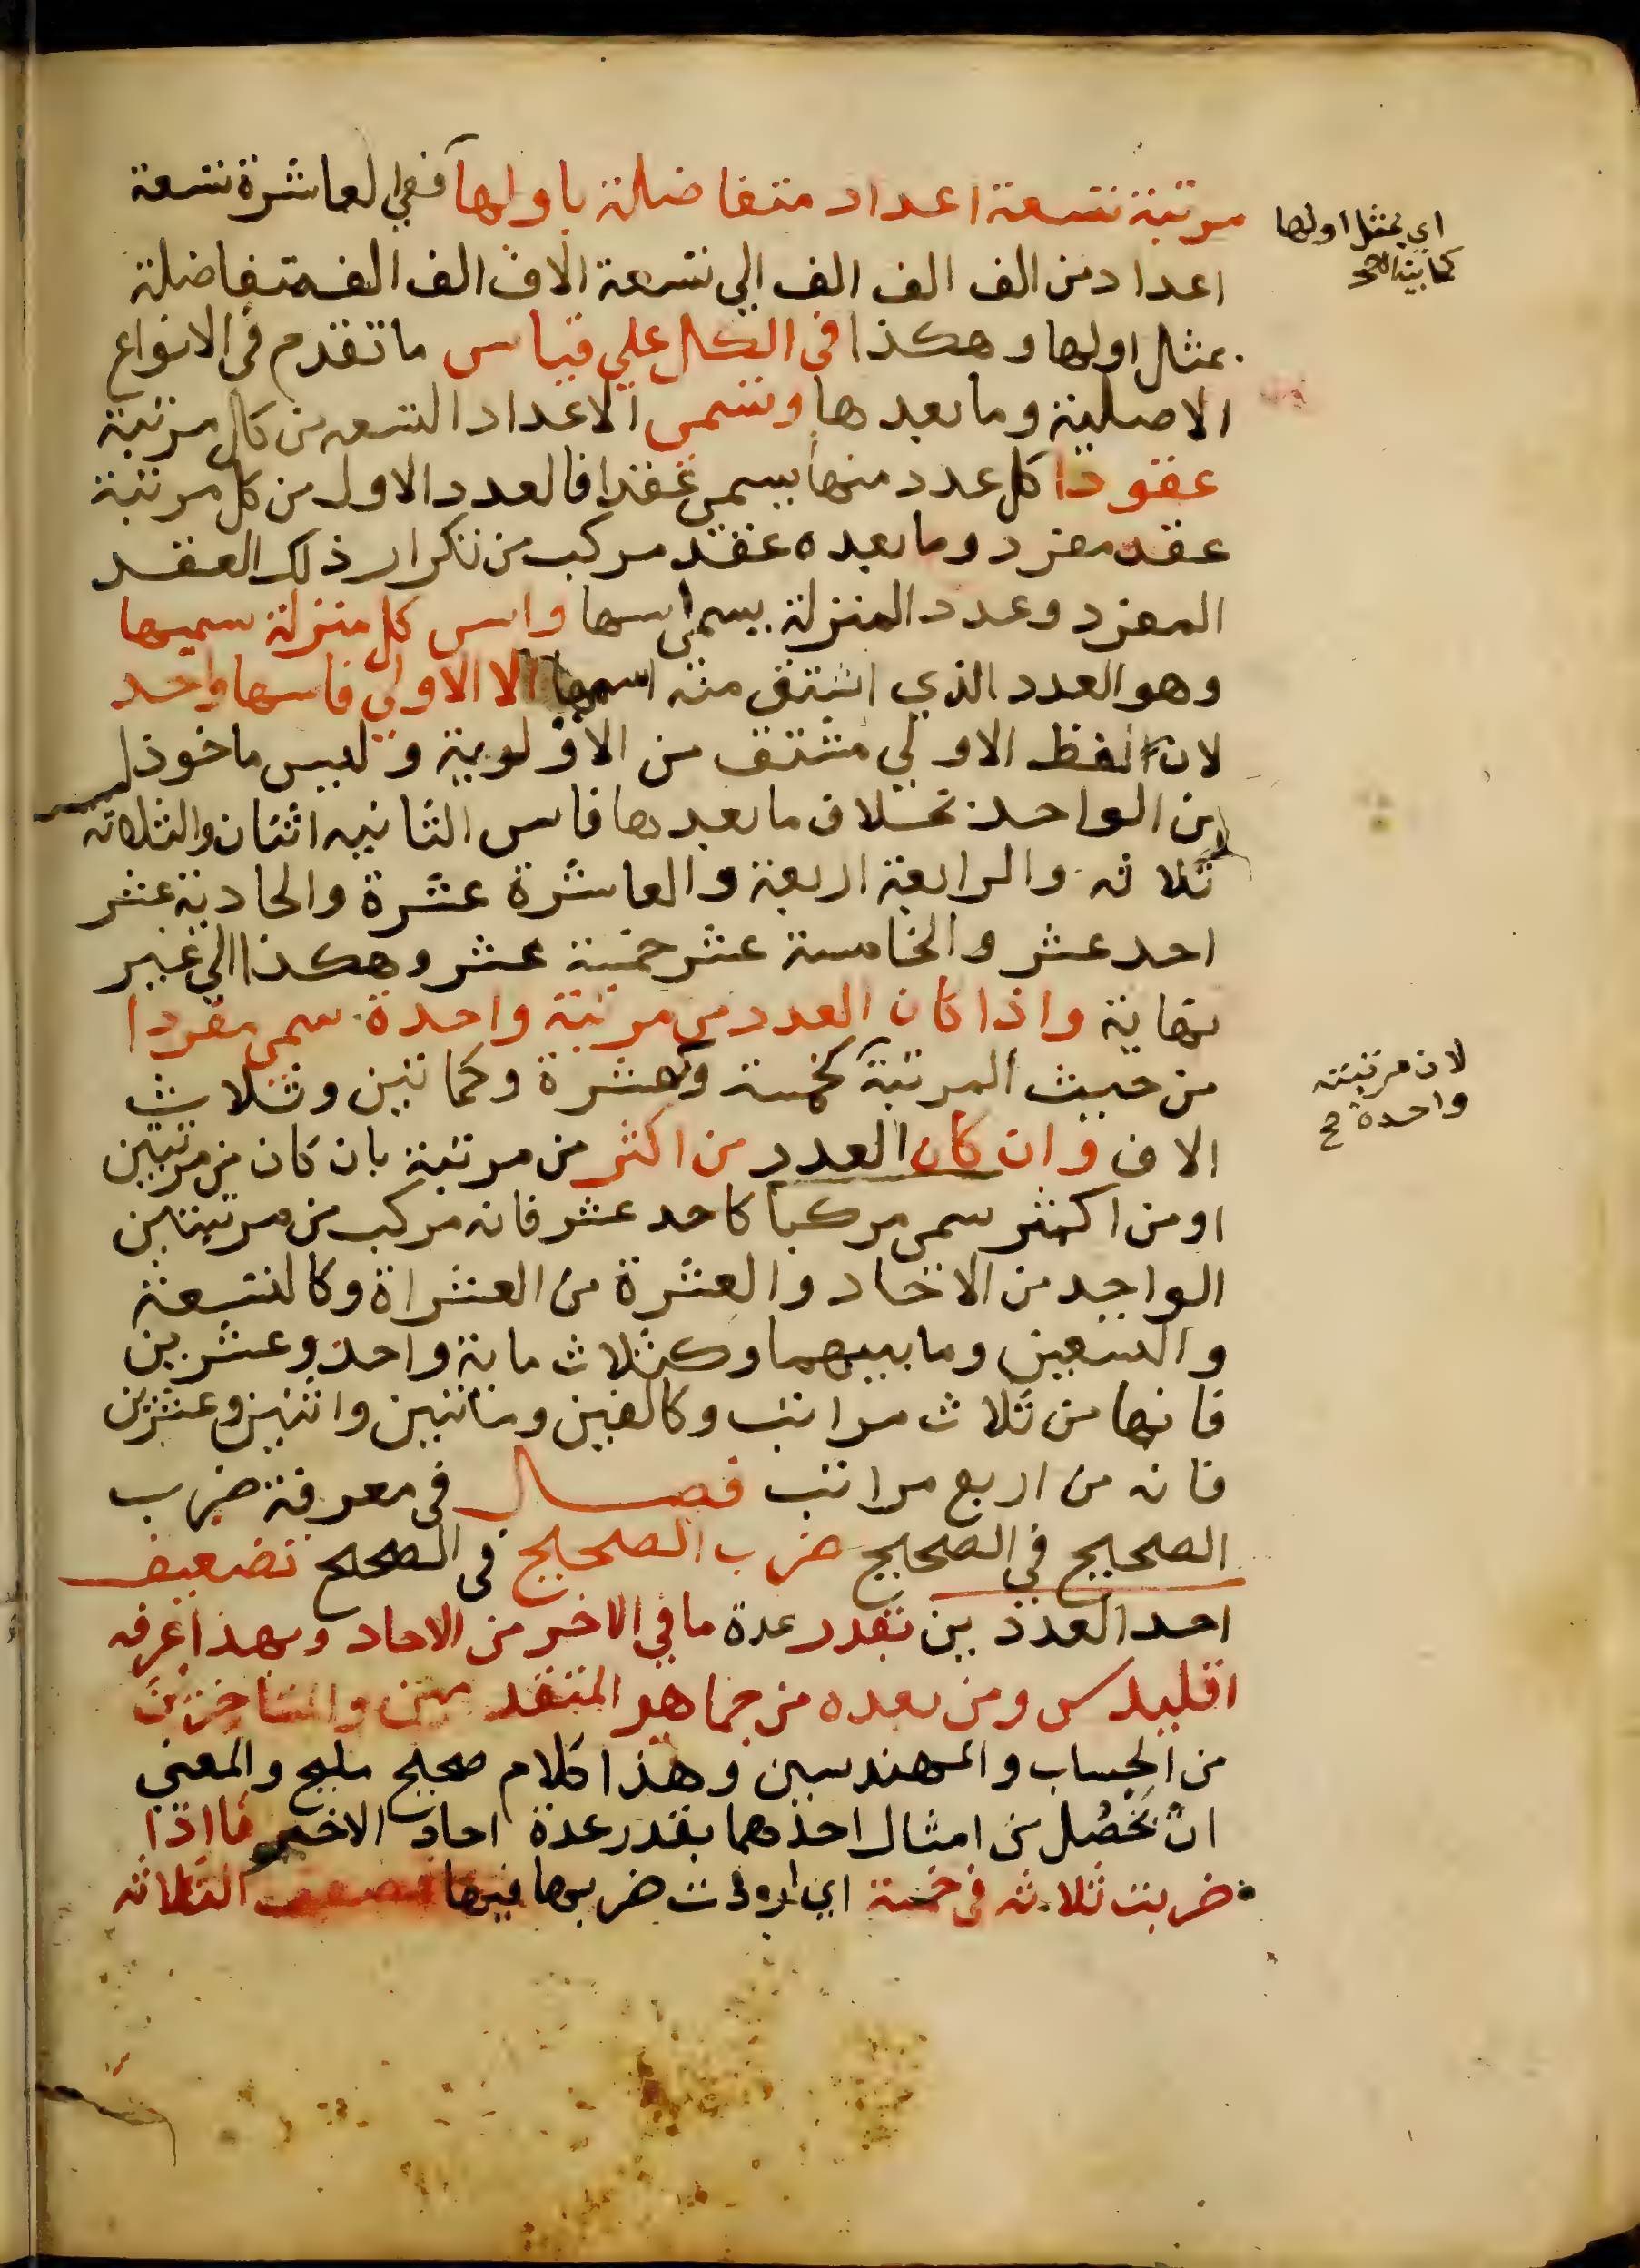 مرتبة تسعة اعداد متفاضلة باولها ففي العاشرة تسعة
اعداد من الف الف الف الي تسعة الاف الف الف متفاضلة
بمثل اولها وهكذا في الكل علي قياس ما تقدم في الانواع
الاصلية وما بعدها وتسمي الاعداد التسعه من كل مرتبة
عقودا كل عدد منها يسمي عقدا فالعدد الاول من كل مرتبة
عقد مفرد وما بعده عقد مركب من تكرار ذلك العقد
المفرد وعدد المنزلة يسمي اسها واس كل منزلة سميها
وهو العدد الذي اشتق منه اسمها الا الاولي فاسها واحد
لان لفظ الاولي مشتق من الاولوية وليس ماخوذا
من الواحد بخلاف ما بعدها فاس الثانيه اثنان والثلاثه
ثلاثه والرابعة اربعة والعاشرة عشرة والحادية عشر
احد عشر والخامسة عشر خمسة عشر وهكذا الي غير
نهاية واذا كان العدد من مرتبة واحدة سمي مفردا
من حيث المرتبة كخمسة وكعشرة وكماتين وثلاث
الاف وان كان العدد من اكثر من مرتبة بان كان من مرتبتين
او من اكثر سمي مركبا كاحد عشر فانه مركب من مرتبتين
الواحد من الاحاد والعشرة من العشراة وكالتسعة
والتسعين وما بينهما وكثلاث ماية واحد وعشرين
فانها من ثلاث مراتب وكالفين وماتتين واثنين وعشرين
فانه من اربع مراتب فصل في معرفة ضرب
الصحيح في الصحيح ضرب الصحيح في الصحيح تضعيف
احد العددين بقدر عدة ما في الاخر من الاحاد وبهذا عرفه
اقليدس ومن بعده من جماهر المتقدمين والمتاخرين
من الحساب والمهندسين وهذا كلام صحيح مليح والمعني
ان تحصل من امثال احدهما بقدر عدة احاد الاخر فاذا
ضربت ثلاثه في خمسة اي اردت ضربها فيها فضعف الثلاثه
اي بمثل اولها
كما بينه الاخ
لان مرتبته
واحدة ح